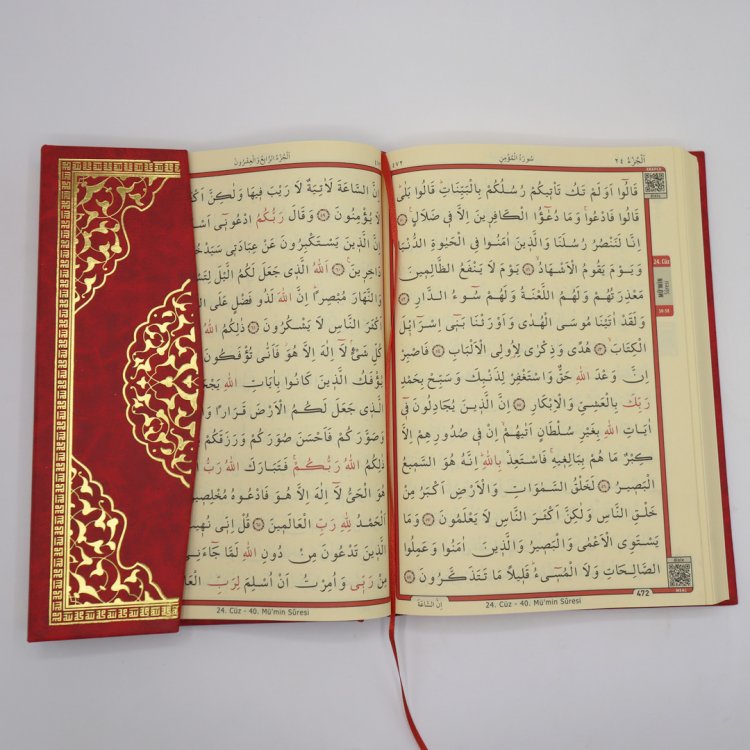 اَلْجُزْءُ ٢٤
سُورَةُ الْمُؤْمِنِ
٤٧٢
قَالُٓوا اَوَلَمْ تَكُ تَأْت۪يكُمْ رُسُلُكُمْ بِالْبَيِّنَاتِۜ قَالُوا بَلٰىۜ
قَالُوا فَادْعُواۚ وَمَا دُعٰٓؤُا الْكَافِر۪ينَ اِلَّا ف۪ي ضَلَالٍ۟
اِنَّا لَنَنْصُرُ رُسُلَنَا وَالَّذ۪ينَ اٰمَنُوا فِي الْحَيٰوةِ الدُّنْيَا
وَيَوْمَ يَقُومُ الْاَشْهَادُۙ يَوْمَ لَا يَنْفَعُ الظَّالِم۪ينَ
مَعْذِرَتُهُمْ وَلَهُمُ اللَّعْنَةُ وَلَهُمْ سُٓوءُ الدَّارِ
وَلَقَدْ اٰتَيْنَا مُوسَى الْهُدٰى وَاَوْرَثْنَا بَن۪ٓي اِسْرَٓائ۪لَ
الْكِتَابَۙ هُدًى وَذِكْرٰى لِاُو۬لِي الْاَلْبَابِ فَاصْبِرْ
اِنَّ وَعْدَ اللّٰهِ حَقٌّ وَاسْتَغْفِرْ لِذَنْبِكَ وَسَبِّحْ بِحَمْدِ
رَبِّكَ بِالْعَشِيِّ وَالْاِبْكَارِ اِنَّ الَّذ۪ينَ يُجَادِلُونَ ف۪ٓي
اٰيَاتِ اللّٰهِ بِغَيْرِ سُلْطَانٍ اَتٰيهُمْۙ اِنْ ف۪ي صُدُورِهِمْ اِلَّا
كِبْرٌ مَا هُمْ بِبَالِغ۪يهِۚ فَاسْتَعِذْ بِاللّٰهِۜ اِنَّهُ هُوَ السَّم۪يعُ
الْبَص۪يرُ لَخَلْقُ السَّمٰوَاتِ وَالْاَرْضِ اَكْبَرُ مِنْ
خَلْقِ النَّاسِ وَلٰكِنَّ اَكْثَرَ النَّاسِ لَا يَعْلَمُونَ وَمَا
يَسْتَوِي الْاَعْمٰى وَالْبَص۪يرُ وَالَّذ۪ينَ اٰمَنُوا وَعَمِلُوا
الصَّالِحَاتِ وَلَا الْمُس۪ٓيءُۜ قَل۪يلًا مَا تَتَذَكَّرُونَ
24. Cüz
MÜ'MİN
Sûresi
50-58
MEAL
472
24. Cüz - 40. Mü'min Sûresi
اِنَّ السَّاعَةَ
اَلْجُزْءُ الرَّابِعُ وَالْعِشْرُونَ
اِنَّ السَّاعَةَ لَاٰتِيَةٌ لَا رَيْبَ ف۪يهَا وَلٰكِنَّ اَكْ
لَا يُؤْمِنُونَ وَقَالَ رَبُّكُمُ ادْعُون۪ٓي اَسْ
اِنَّ الَّذ۪ينَ يَسْتَكْبِرُونَ عَنْ عِبَادَت۪ي سَيَدْخُ
دَاخِر۪ينَ۟ اَللّٰهُ الَّذ۪ي جَعَلَ لَكُمُ الَّيْلَ لِتَسْ
وَالنَّهَارَ مُبْصِرًاۜ اِنَّ اللّٰهَ لَذُو فَضْلٍ عَلَى ال
اَكْثَرَ النَّاسِ لَا يَشْكُرُونَ ذٰلِكُمُ اللّٰهُ
كُلِّ شَيْءٍۢ لَٓا اِلٰهَ اِلَّا هُوَۘ فَاَنّٰى تُؤْفَكُونَ
يُؤْفَكُ الَّذ۪ينَ كَانُوا بِاٰيَاتِ اللّٰهِ يَجْحَ
اَلَّذ۪ي جَعَلَ لَكُمُ الْاَرْضَ قَرَارًا وَ
وَصَوَّرَكُمْ فَاَحْسَنَ صُوَرَكُمْ وَرَزَقَكُمْ
ذٰلِكُمُ اللّٰهُ رَبُّكُمْۚ فَتَبَارَكَ اللّٰهُ رَبُّ
هُوَ الْحَيُّ لَٓا اِلٰهَ اِلَّا هُوَ فَادْعُوهُ مُخْلِص۪ي
اَلْحَمْدُ لِلّٰهِ رَبِّ الْعَالَم۪ينَ قُلْ اِنّ۪ي نُه۪يتُ
الَّذ۪ينَ تَدْعُونَ مِنْ دُونِ اللّٰهِ لَمَّا جَٓاءَنِيَ
مِنْ رَبّ۪ي وَاُمِرْتُ اَنْ اُسْلِمَ لِرَبِّ الْعَا
24. Cüz - 40. Mü'min Sûresi